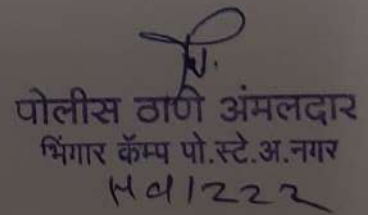 पोलीस ठाणे अंमलदार
भिंगार कॅम्प पो.स्टे.अ.नगर